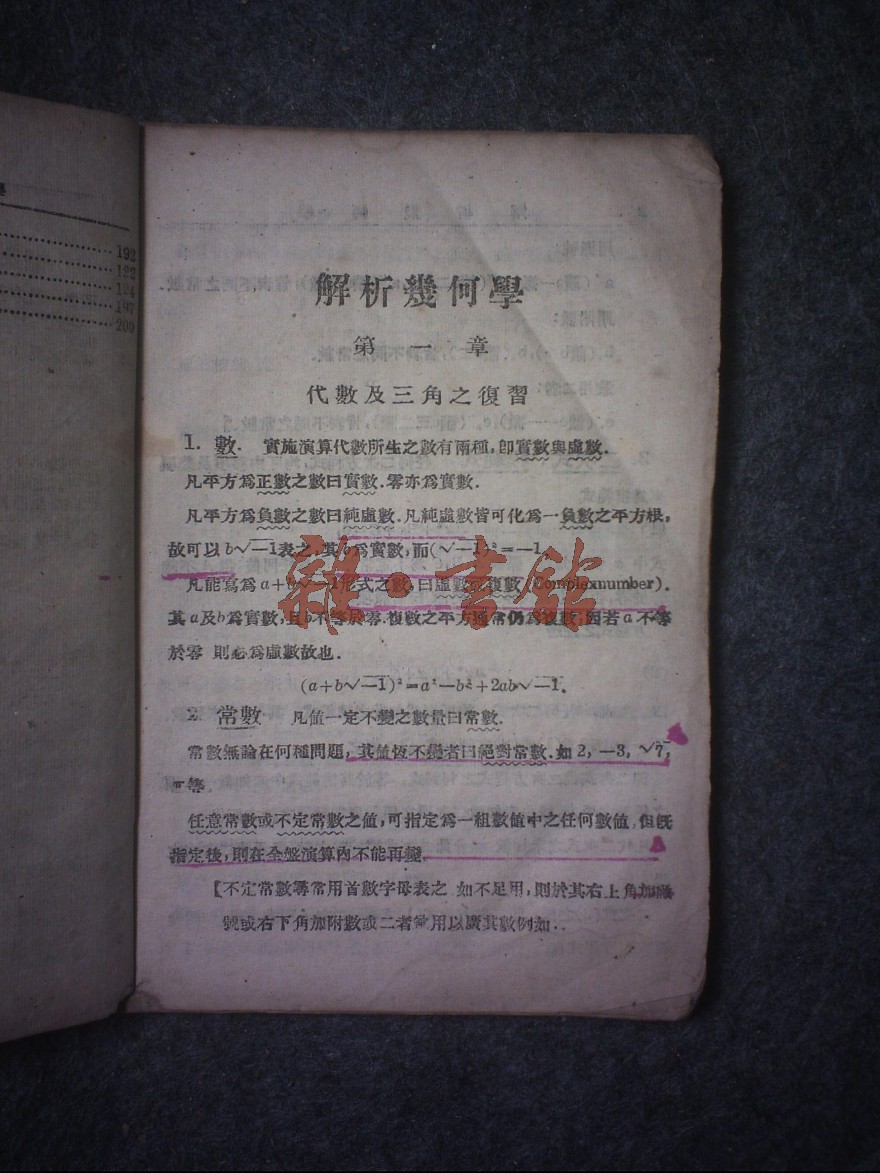 192
122
124
197
200
解析幾何學
第一章
代數及三角之復習
1. 數. 實施演算代數所生之數有兩種,卽實數與虛數.
凡平方爲正數之數曰實數.零亦爲實數.
凡平方爲負數之數曰純虛數.凡純虛數皆可化爲一負數之平方根,
故可以b√—1表之,其b爲實數,而(√—1)²=—1.
凡能寫爲a+b√—1形式之數,曰虛數或複數(Complexnumber).
其a及b爲實數,且b不等於零.複數之平方通常仍爲複數;因若a不等
於零 則必爲虛數故也.
(a+b√—1)²=a²—b²+2ab√—1.
2. 常數 凡値一定不變之數量曰常數.
常數無論在何種問題,其値恆不變者曰絕對常數.如2, —3, √7,
等.
任意常數或不定常數之值,可指定爲一組數値中之任何數値,但旣
指定後,則在全盤演算內不能再變.
【不定常數尋常用首數字母表之 如不足用,則於其右上角加
號或右下角加附數或二者並用以廣其數例如..
雜·書館